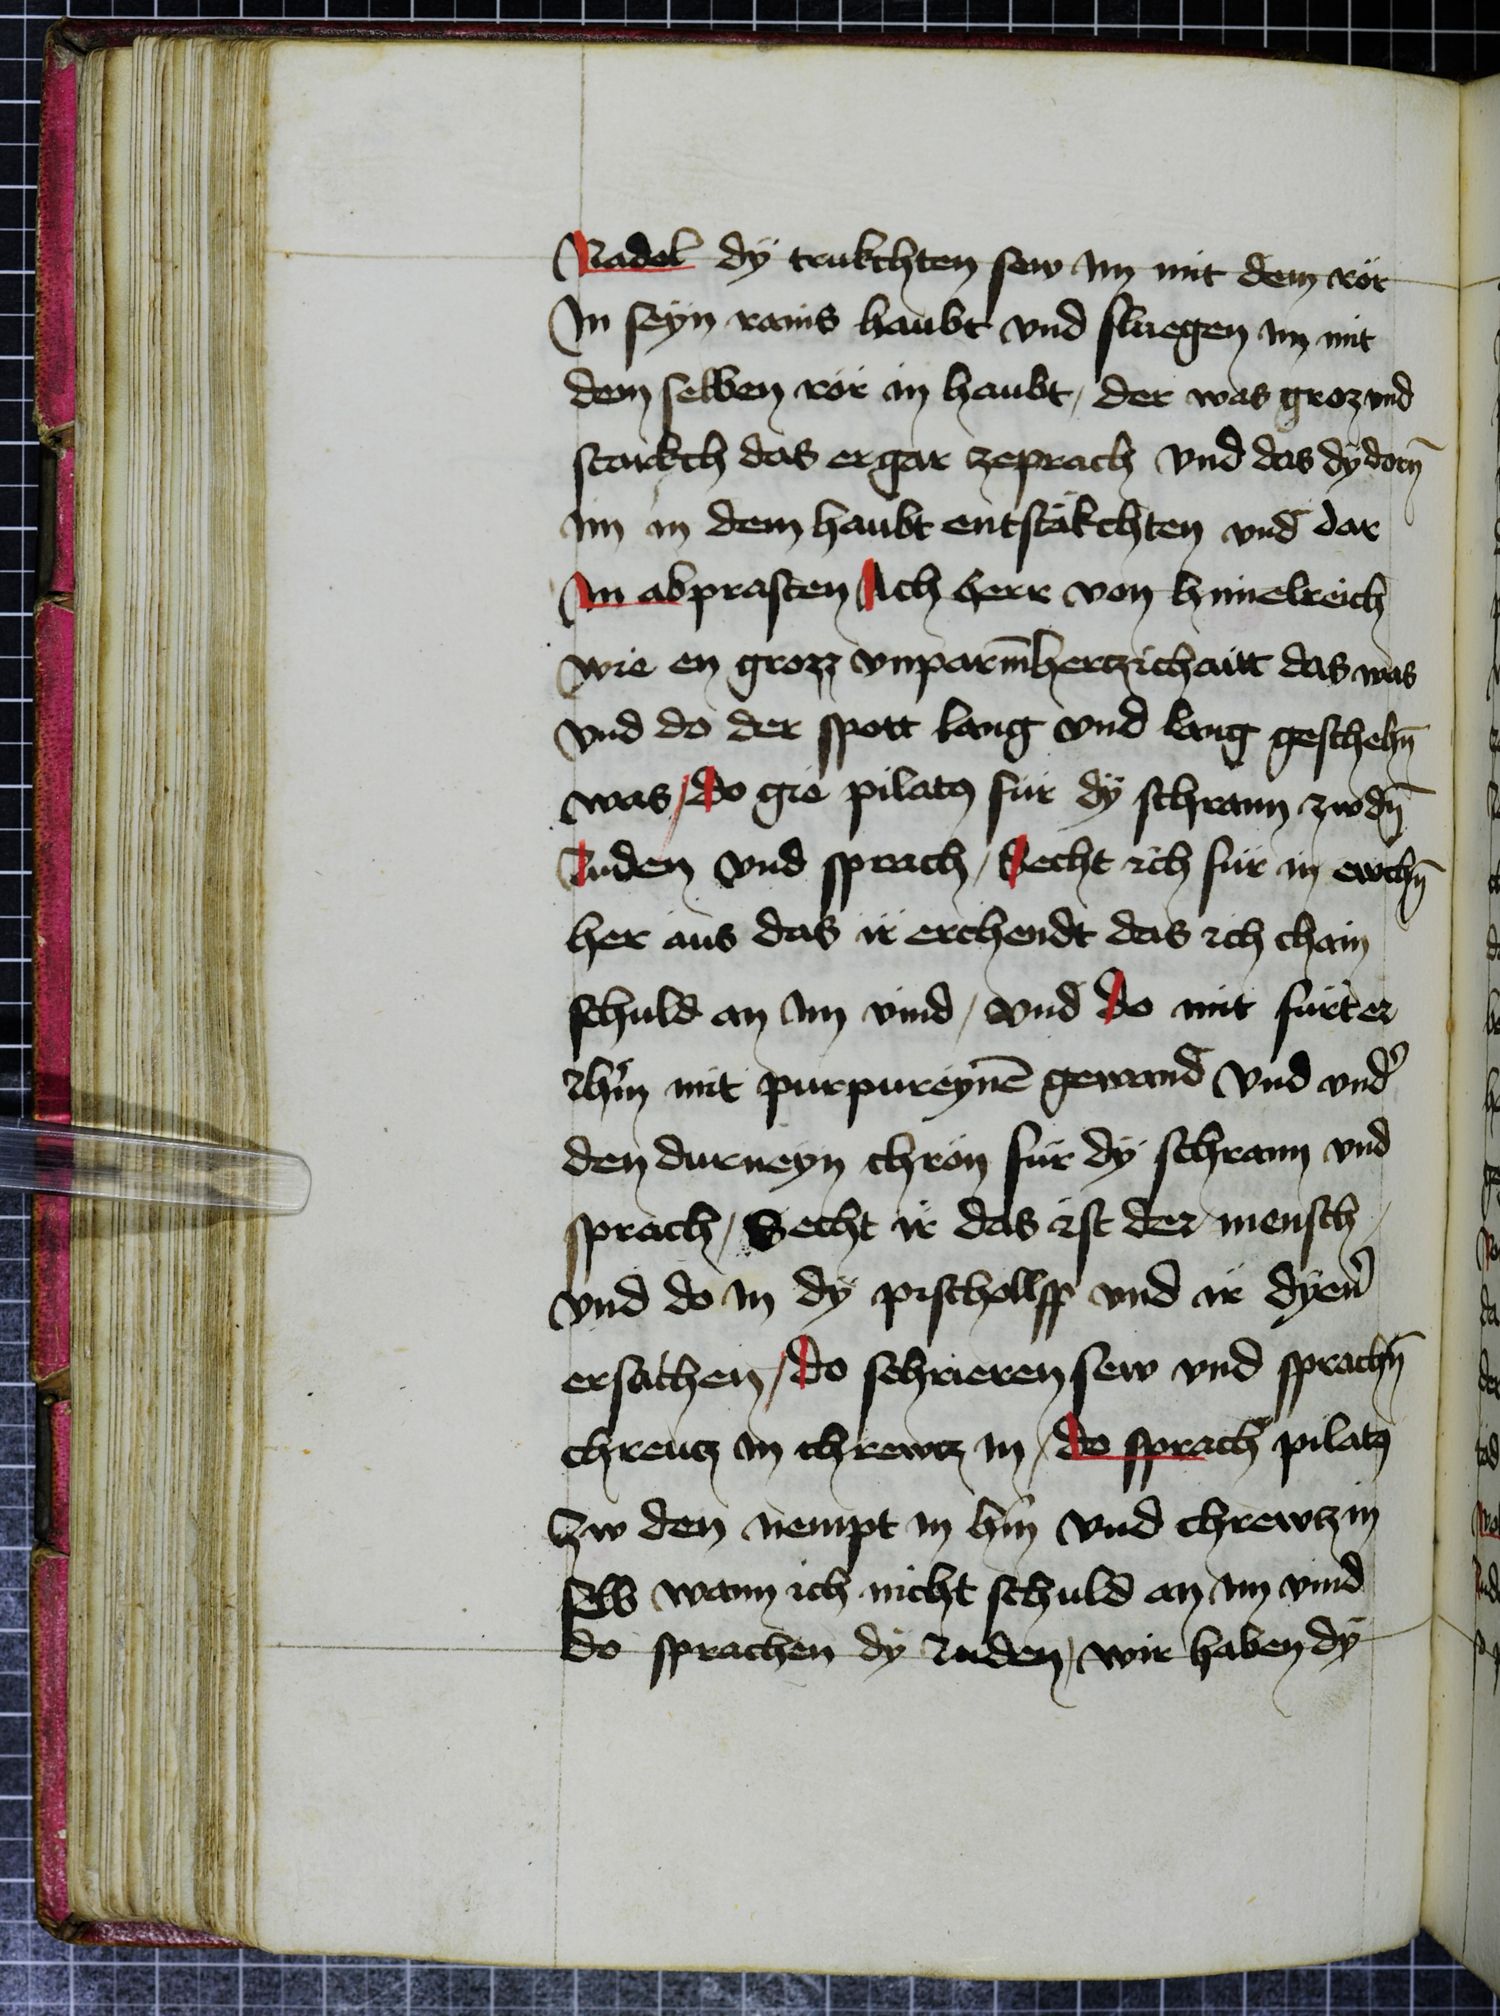 Nadel dÿ trukchten sew im mit dem rör
In seyn rains haubt vnd sluegen im mit
dem selben rör in haubt / der was groz vnd
starkch das er gar zeprach vnd das dÿ dorn̄
im in dem haubt entstäkchten vnd dar
In abprasten Ach herr von himelreich
wie en grozz vnparm̄hertzichaitt das was
vnd do der spott lang vnd lang geschehn̄
was / do gie pilatꝰ für dÿ schrann zw dn̄
Iuden vnd sprach / Secht ich für in ewchn̄
her aus das ir erchendt das ich chain
schuld an im vind / vnd do mit fürt er
Ihm̄ mit purpureynē gewand vnd vnd᷎
den durneyn chrön für dÿ schrann vnd
sprach / Secht ir das ist der mensch /
vnd do in dÿ pischollff vnd ir dyen᷎
ersachen / do schrieren sew vnd sprachn̄
chreutz in chrewtz in / do sprach pilatꝰ
zw den nempt in hin vnd chrewtz in
selb wann ich nicht schuld an im vind
do sprachen dÿ Iuden / wir haben dÿ